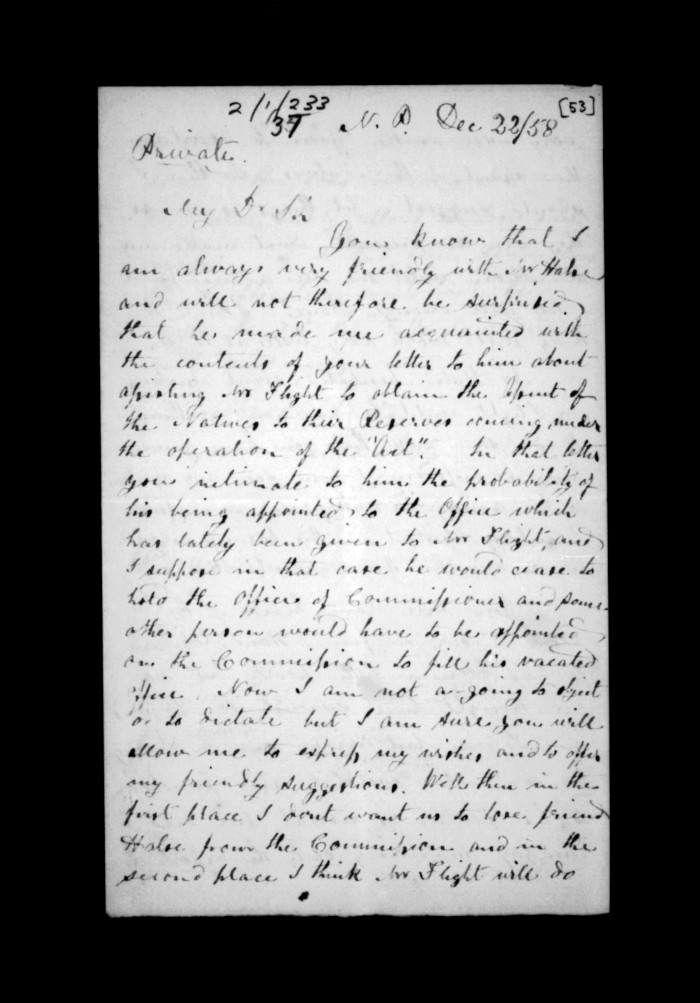 2/1/233
37
[53]
N. P. Dec 22/58
Private.
My Dr Sir
You know that I
am always very friendly with Mr Halse
and will not therefore be surprised
that he made me acquainted with
the contents of your letter to him about
assisting Mr Flight to obtain the Assent of
the Natives to their Reserves coming under
the operation of the "Act". In that letter
you intimate to him the probability of
his being appointed to the Office which
has lately been given to Mr Flight, and
I suppose in that case he would cease to
hold the office of Commissioner and some
other person would have to be appointed
on the Commission to fill his vacated
office. Now I am not a-going to object
or to dictate but I am sure you will
allow me to express my wishes and to offer
my friendly suggestions. Well then in the
first place I dont want us to lose friend
Halse from the Commission and in the
second place I think Mr Flight will do